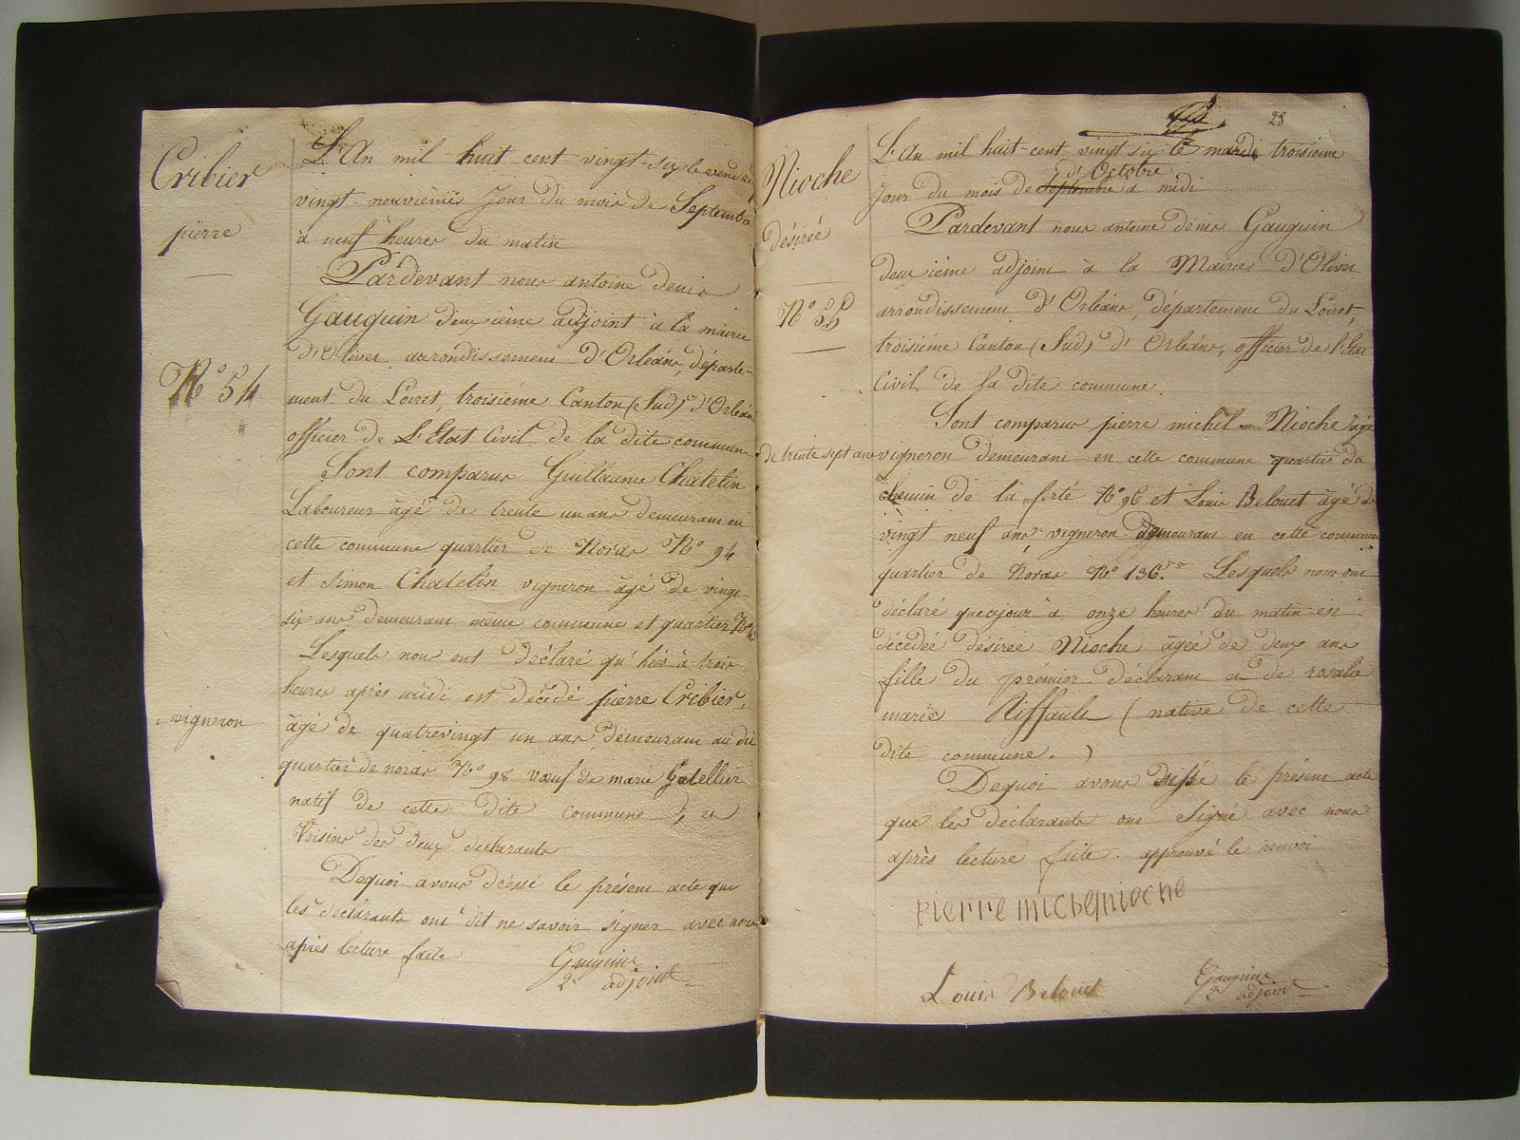 Cribier
pierre
N° 54
vigneron
L'An mil huit cent vingt-six le vendredi
vingt-neuvième Jour du mois de Septembre
à neuf heures du matin
Pardevant nous antoine denis
Gauguin deuxième adjoint à la mairie
d'Olivet arrondissement d'Orléans, départe-
ment du Loiret, troisième Canton (Sud) d'Orléans
officier de L'Etat Civil de la dite commune
Sont comparus Guillaume Chatelin
Laboureur âgé de trente un ans demeurant en
cette commune quartier de Noras N° 94
et Simon Chatelin vigneron âgé de vingt
six ans demeurant même commune et quartier N°
Lesquels nous ont déclaré qu'hier à trois
heures après midi est décédé pierre Cribier,
âgé de quatrevingt un ans demeurant au dit
quartier de noras N° 98 vœuf de marie Gatellier
natif de cette dite commune), et
Voisins des deux déclarants
Dequoi avons dressé le présent acte que
les déclarants ont dit ne savoir signer avec nous
après lecture faite
Gauguin
2e adjoint
25
Nioche
désirée
N° 55
L'An mil huit-cent vingt six le mardi troisième
d'Octobre
jour du mois de septembre à midi
Pardevant nous antoine denis Gauguin
deuxième adjoint à la Mairie d'Olivet
arrondissement d'Orléans, département du Loiret,
troisième Canton (Sud) d'Orléans, officier de l'Etat
Civil de la dite commune.
Sont comparus pierre michel Nioche âgé
de trente sept ans vigneron demeurant en cette commune quartier du
chemin de la ferté N° 96 et Louis Belouet âgé de
vingt neuf ans vigneron demeurant en cette commune
quartier de Noras N° 136. Lesquels nous ont
déclaré que cejour à onze heures du matin est
décédée désirée Nioche âgée de deux ans
fille du prémier déclarant et de rosalie
marie Riffault (native de cette
dite commune.)
Dequoi avons dressé le présent acte
que les déclarants ont signé avec nous
après lecture faite. approuvé le renvoi
pierre michel nioche
Louis Belouet
Gauguin
2e adjoint